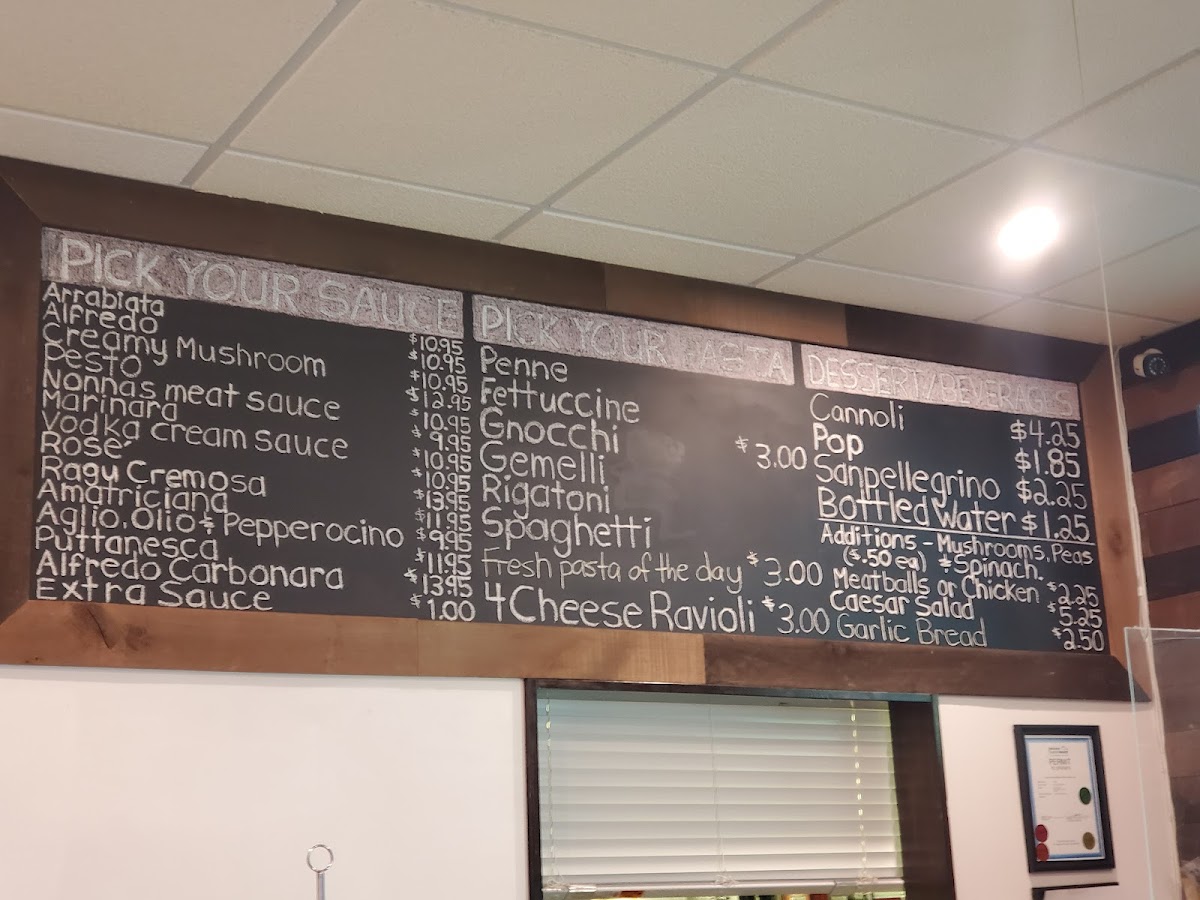 PICK YOUR SAUCE
Arrabiata $10.95
Alfredo $10.95
Creamy Mushroom $10.95
Pesto $12.95
Nonnas meat sauce $10.95
Marinara $9.95
Vodka cream sauce $10.95
Rosé $10.95
Ragu Cremosa $13.95
Amatriciana $11.95
Aglio, Olio & Pepperocino $9.95
Puttanesca $11.95
Alfredo Carbonara $13.95
Extra Sauce $1.00
PICK YOUR PASTA
Penne
Fettuccine
Gnocchi $3.00
Gemelli
Rigatoni
Spaghetti
Fresh pasta of the day $3.00
4 Cheese Ravioli $3.00
DESSERT/BEVERAGES
Cannoli $4.25
Pop $1.85
Sanpellegrino $2.25
Bottled Water $1.25
Additions - Mushrooms, Peas
($.50 ea) & Spinach.
Meatballs or Chicken $2.25
Caesar Salad $5.25
Garlic Bread $2.50
PERMIT